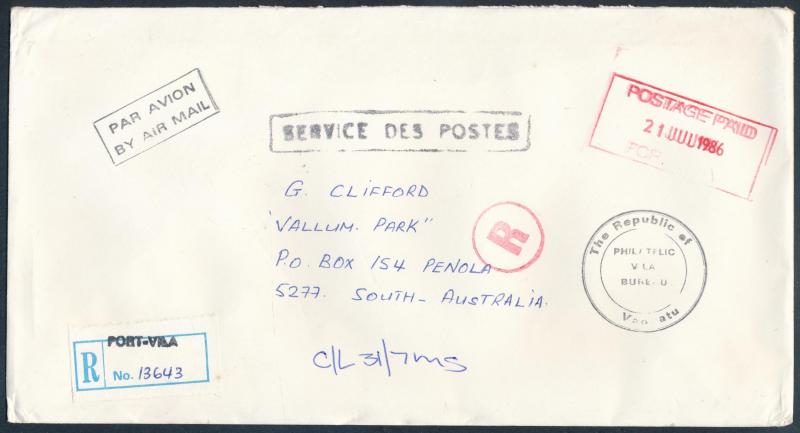 PAR AVION
BY AIR MAIL
SERVICE DES POSTES
POSTAGE PAID
21 JUL 1986
POR
G. CLIFFORD
'VALLUM. PARK"
P.O. BOX 154 PENOLA
5277. SOUTH-AUSTRALIA.
R
The Republic of
PHIL TELIC
V LA
BURE U
Van atu
PORT-VILA
R No. 13643
C/L 31/7 ms